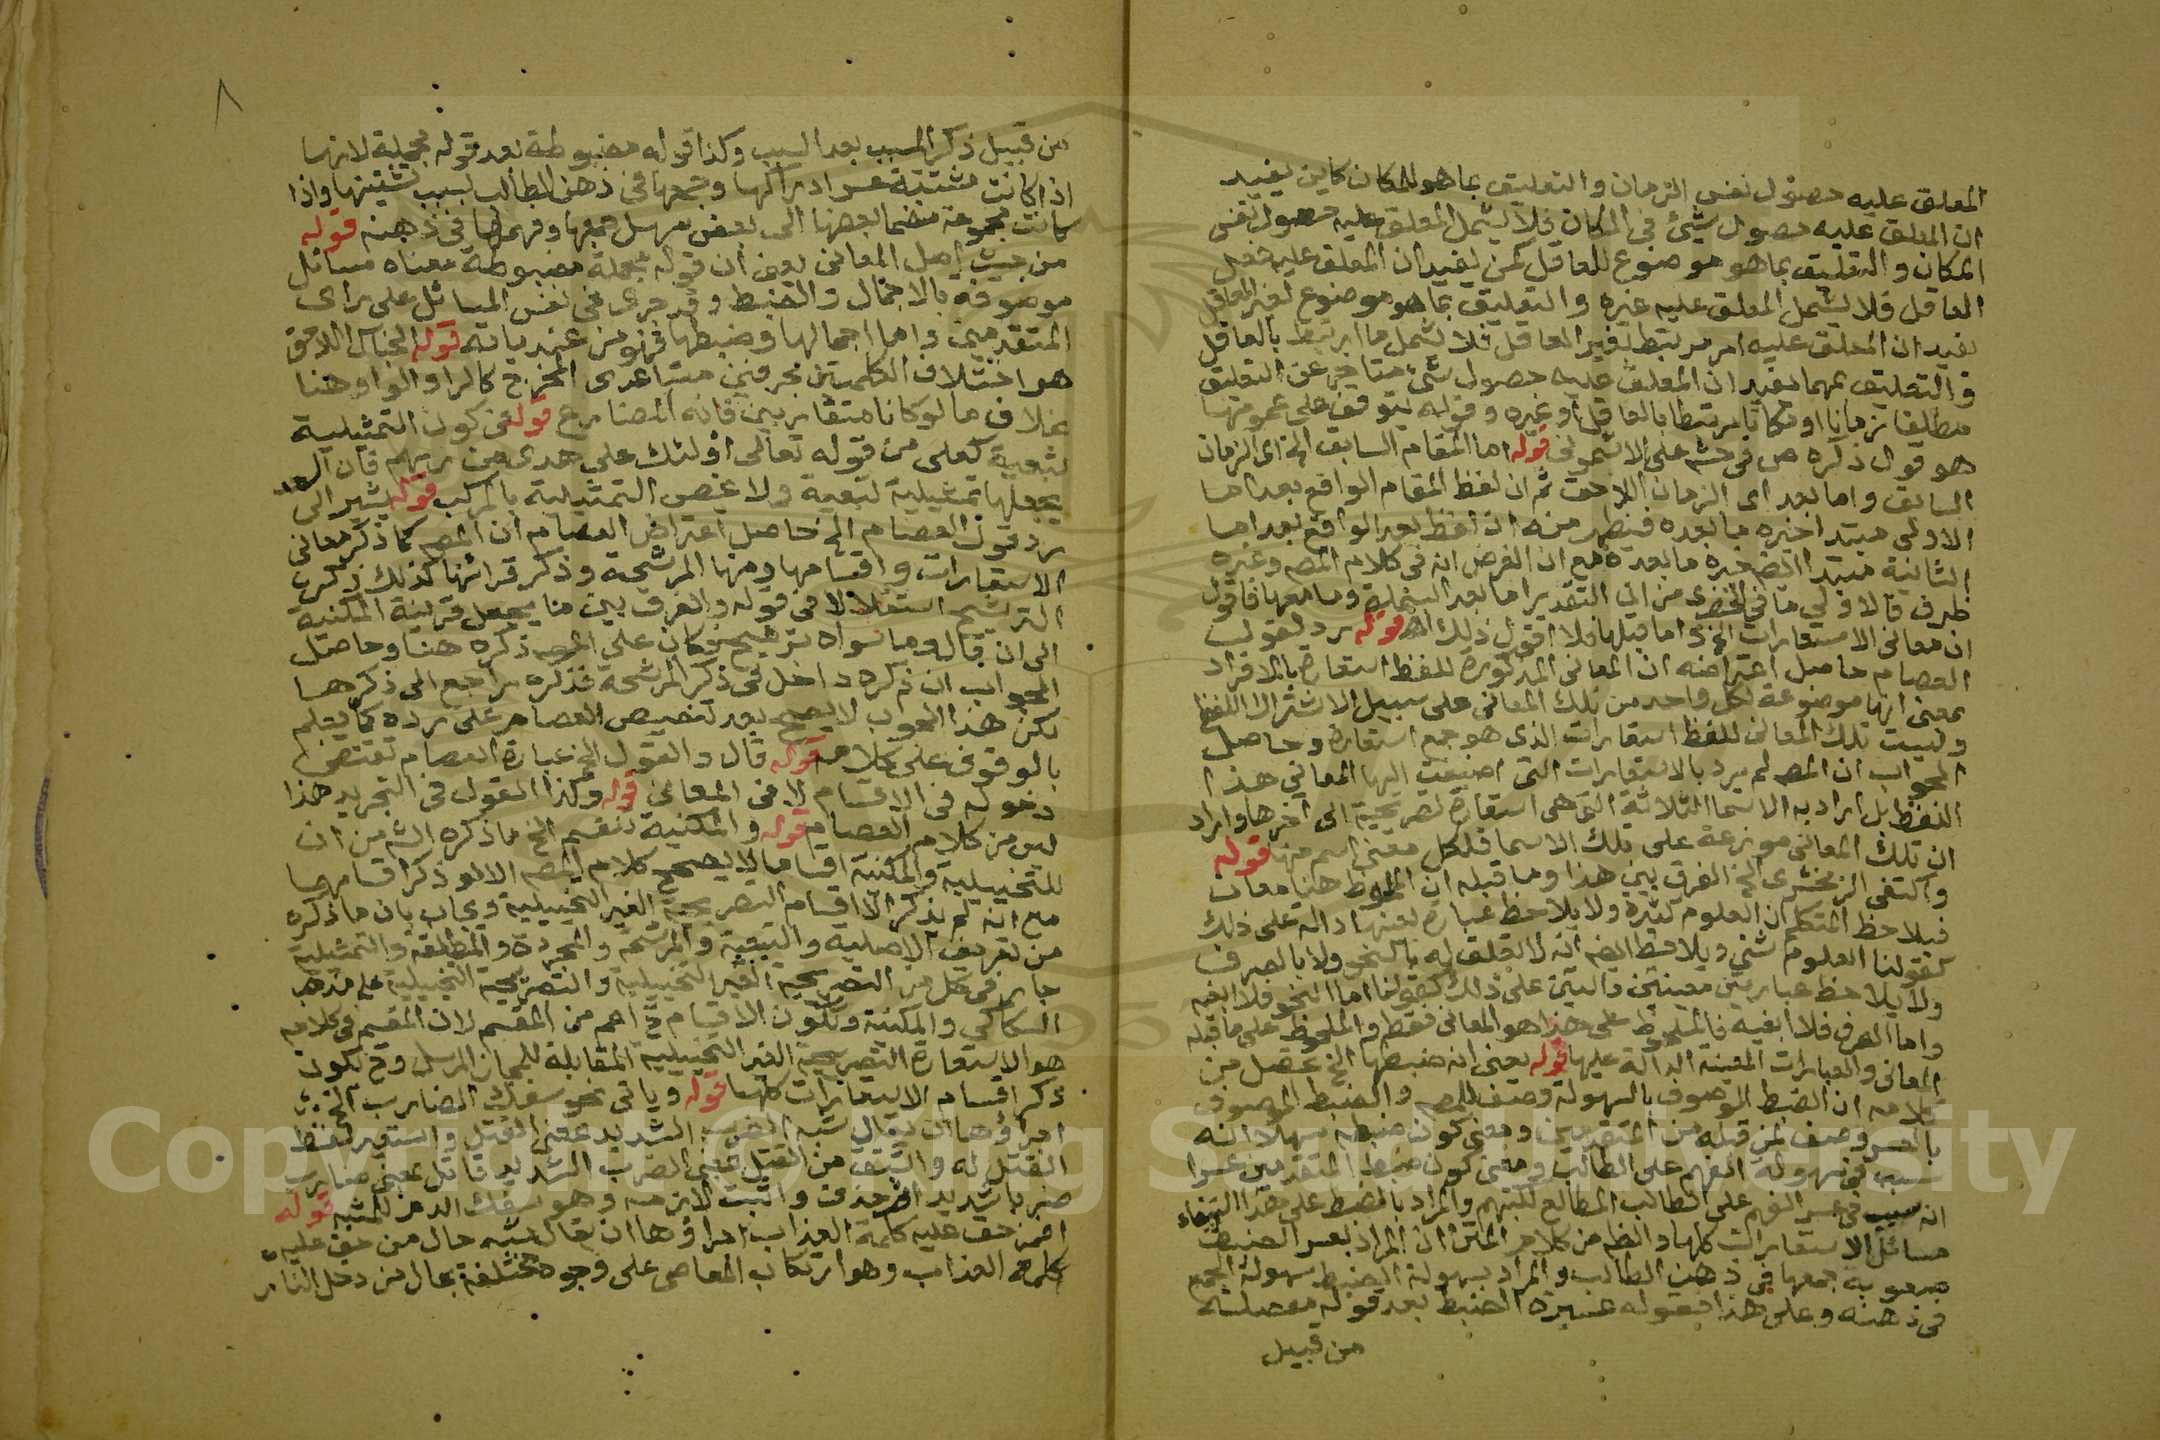 المعلق عليه حصول نفس الزمان والتعليق بما هو للمكان كاين يفيد
ان المعلق عليه حصول شيئ في المكان فلا يشمل المعلق عليه حصول نفس
المكان والتعليق بما هو موضوع للعاقل كمن يفيد ان المعلق عليه فعل
العاقل فلا يشمل المعلق عليه غيره والتعليق بما هو موضوع لغير العاقل
يفيد ان المعلق عليه امر مرتبط بغير العاقل فلا يشمل ما ارتبط بالعاقل
والتعليق بمهما يفيد ان المعلق عليه حصول شيء متاخر عن التعليق
مطلقا زمانا او مكانا مرتبطا بالعاقل او غيره وقوله يتوقف على عمومتها
هو قول ذكره ص في حشه على الاشموني قوله اما المقام السابق الخ اى الزمان
السابق واما بعد اى الزمان اللاحق ثم ان لفظ المقام الواقع بعد اما
الاولى مبتدا خبره ما بعده فيظهر منه ان لفظ بعد الواقع بعد اما
الثانية مبتدا ايضا خبره ما بعده مع ان الفرض انه في كلام المصـ وغيره
ظرف فالاولى ما في الخضرى من ان التقدير اما بعد البسملة وما معها فاقول
ان معانى الاستعارات الخ اى اما قبلها فلا اقول ذلك اهـ قوله رد لقول
العصام حاصل اعتراضه ان المعانى المذكورة للفظ استعارة بالافراد
بمعنى انها موضوعة لكل واحد من تلك المعانى على سبيل الاشتراك اللفظي
وليست تلك المعانى للفظ استعارات الذى هو جمع استعارة وحاصل
الجواب ان المصـ لم يرد بالاستعارات التى اضيفت اليها المعاني هذا
اللفظ بل اراد به الاسما الثلاثة التى هى استعارة تصريحية الى اخرها واراد
ان تلك المعانى موزعة على تلك الاسما فلكل معنى اسم منها قوله
واكتفى الزمخشرى الخ الفرق بين هذا وما قبله ان الملحوظ هنا معان
فيلاحظ المتكلم ان العلوم كثيرة ولا يلاحظ عبارة بعينها دالة على ذلك
كقولنا العلوم شتى ويلاحظ ايضا انه لا تعلق له بالنحو ولا بالصرف
ولا يلاحظ عبارتين معينتين دالتين على ذلك كقولنا اما النحو فلا ابغيه
واما الصرف فلا ابغيه فالملحوظ على هذا هو المعانى فقط والملحوظ على ما قبله
المعانى والعبارات المعينة الدالة عليها قوله يعنى ان ضبطها الخ تحصل من
كلامه ان الضبط الموصوف بالسهولة وصف للمصـ والضبط الموصوف
بالعسر وصف لمن قبله من المتقدمين ومعنى كون ضبطه سهلا انه
سبب في سهولة الفهم على الطالب ومعنى كون ضبط المتقدمين عسرا
انه سبب في عسر الفهم على الطالب المطالع لكتبهم والمراد بالضبط على هذا استيفاء
مسائل الاستعارات كلها والظهـ من كلام المتن ان المراد بعسر الضبط
صعوبة جمعها في ذهن الطالب والمراد بسهولة الضبط سهولة الجمع
في ذهنه وعلى هذا فقوله عسيرة الضبط بعد قوله مفصلة
من قبيل
٨
من قبيل ذكر المسبب بعد السبب وكذا قوله مضبوطة بعد قوله مجملة لانها
اذا كانت مشتتة عسر ادراكها وجمعها في ذهن الطالب بسبب تشتيتها واذا
كانت مجموعة منضما بعضها الى بعض سهل جمعها وفهمها في ذهنه قوله
من حيث اصل المعانى يعنى ان قوله مجملة مضبوطة معناه مسائل
موصوفة بالاجمال والضبط وقد جرى في نفس المسائل على راى
المتقدمين واما اجمالها وضبطها فهو من عندياته قوله الجناس اللاحق
هو اختلاف الكلمتين بحرفين متباعدى المخرج كالراو الواو هنا
بخلاف ما لو كانا متقاربين فانه المضارع قوله في كون التمثيلية
تبعية كعلى من قوله تعالى اولئك على هدى من ربهم فان السعد
يجعلها تمثيلية تبعية ولا يخص التمثيلية بالمركب قوله يشير الى
رد قول العصام الخ حاصل اعتراض العصام ان المصـ كما ذكر معانى
الاستعارات واقسامها ومنها المرشحة وذكر قرائنها كذلك ذكر
الترشيح استقلالا في قوله والفرق بين ما يجعل قرينة المكنية
الى ان قال وما سواه ترشيح فكان على المصـ ذكره هنا وحاصل
الجواب ان ذكره داخل في ذكر المرشحة فذكره راجع الى ذكرها
لكن هذا الجوب لا يصح بعد تنصيص العصام على رده كما يعلم
بالوقوف على كلامه قوله قال والقول الخ عبارة العصام تقتضي
دخوله في الاقسام لا في المعانى قوله وكذا القول في التجريد هذا
ليس من كلام العصام قوله والمكنية تنقسم الخ ما ذكره الشـ من ان
للتخييلية والمكنية اقساما لا يصحح كلام المصـ الا لو ذكر اقسامهما
مع انه لم يذكر الا اقسام التصريحية الغير التخييلية ويجاب بان ما ذكره
من تعريف الاصلية والتبعية والمرشحة والمجردة والمطلقة والتمثيلية
جار في كل من التصريحية الغير التخييلية والتصريحية التخييلية على مذهب
السكاكي والمكنية وتكون الاقسام ح اعم من المقسم لان المقسم في كلامه
هو الاستعارة التصريحية الغير التخييلية المقابلة للمجاز المرسل وح تكون
ذكر اقسام الاستعارات كلها قوله وياتى نحو سفك الضارب الخ
اجراؤها ان يقال شبه الضرب الشديد بمعنى القتل واستعير لفظ
القتل له واشتق من القتل بمعنى الضرب الشديد قاتل بمعنى ضارب
ضربا شديدا ثم حذف واثبت لازمه وهو سفك الدم للمشبه قوله
افمن حق عليه كلمة العذاب اجراؤها ان يقال شبه حال من حق عليه
كلمة العذاب وهو ارتكاب المعاصى على وجوه مختلفة بحال من دخل النار
Copyright © King Saud University